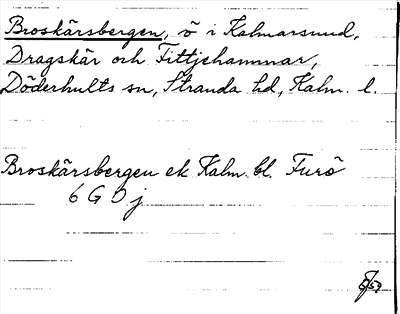 Broskärsbergen, ö i Kalmarsund,
Dragskär och Fittjehammar,
Döderhults sn, Stranda hd, Kalm. l.
Broskärsbergen ek Kalm. bl. Furö
6 G 0 j